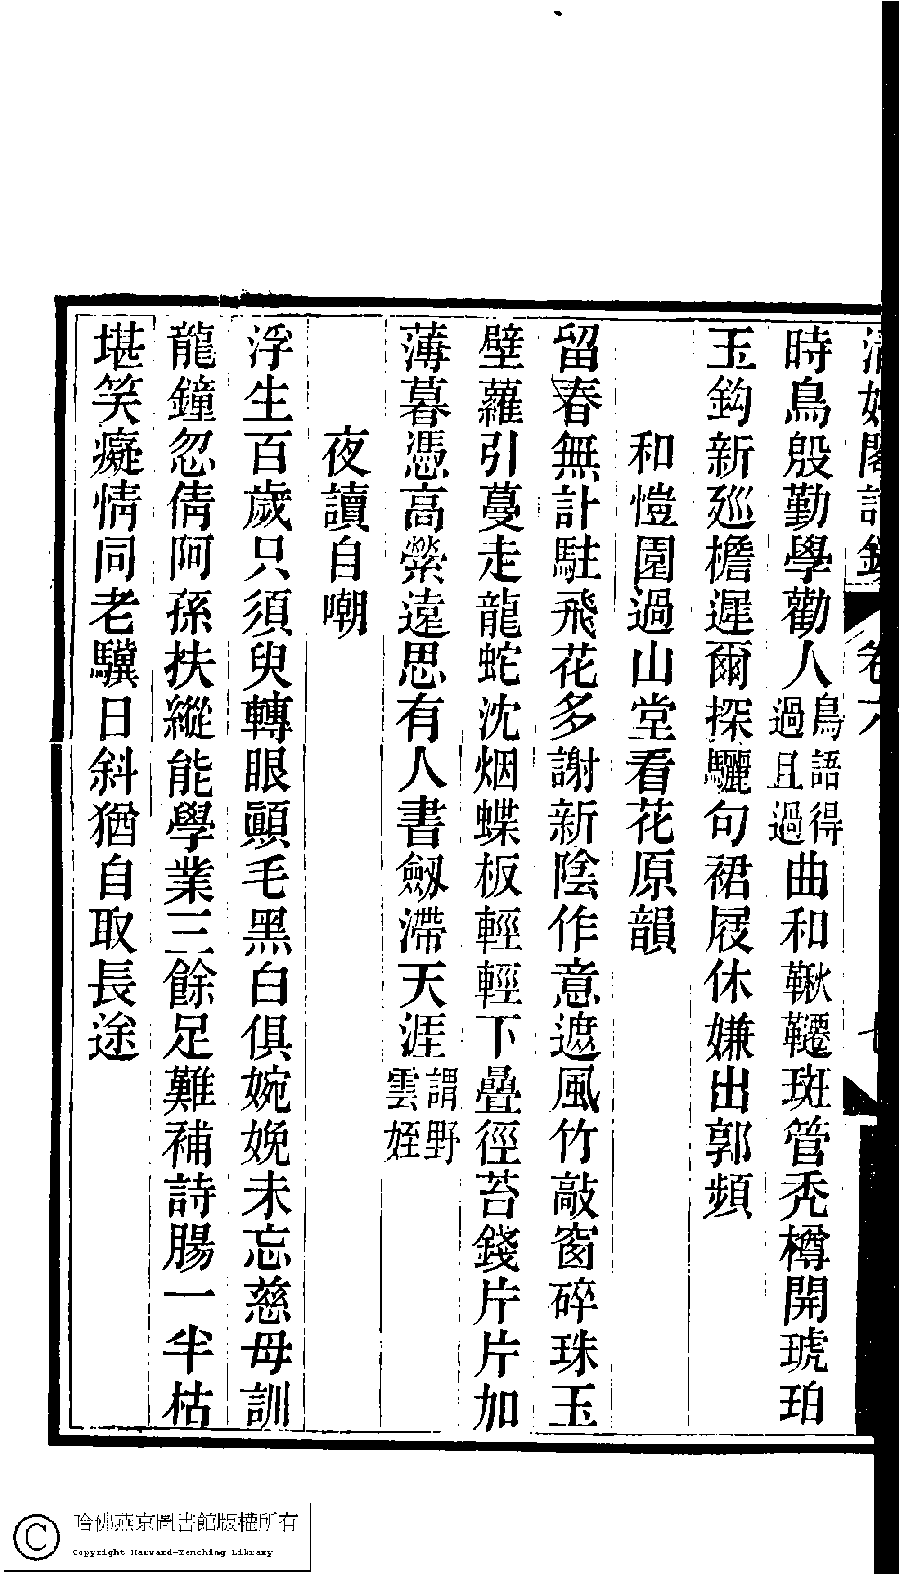 清娛閣詩鈔 卷六 七
時鳥殷勤學勸人鳥語得過且過曲和鞦韆斑管禿樽開琥珀
玉鈎新廵檐遲爾探驪句裙屐休嫌出郭頻
和愷園過山堂看花原韻
留春無計駐飛花多謝新陰作意遮風竹敲窗碎珠玉
壁蘿引蔓走龍蛇沈烟蝶板輕輕下疊徑苔錢片片加
薄暮憑高縈遠思有人書劔滯天涯謂野雲姪
夜讀自嘲
浮生百歲只須臾轉眼顚毛黑白俱婉娩未忘慈母訓
龍鐘忽倩阿孫扶縱能學業三餘足難補詩腸一半枯
堪笑癡情同老驥日斜猶自取長途
哈佛燕京圖書館版權所有
Copyright Harvard-Yenching Library